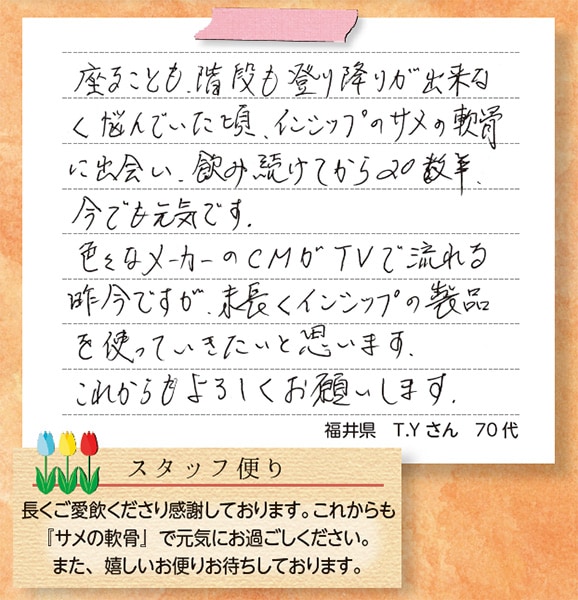 座ることも、階段も登り降りが出来な
く悩んでいた頃、インシップのサメの軟骨
に出会い、飲み続けてから20数年、
今でも元気です。
色々なメーカーのCMがTVで流れる
昨今ですが、末長くインシップの製品
を使っていきたいと思います。
これからもよろしくお願いします。
福井県 T.Yさん 70代
スタッフ便り
長くご愛飲くださり感謝しております。これからも
『サメの軟骨』で元気にお過ごしください。
また、嬉しいお便りお待ちしております。